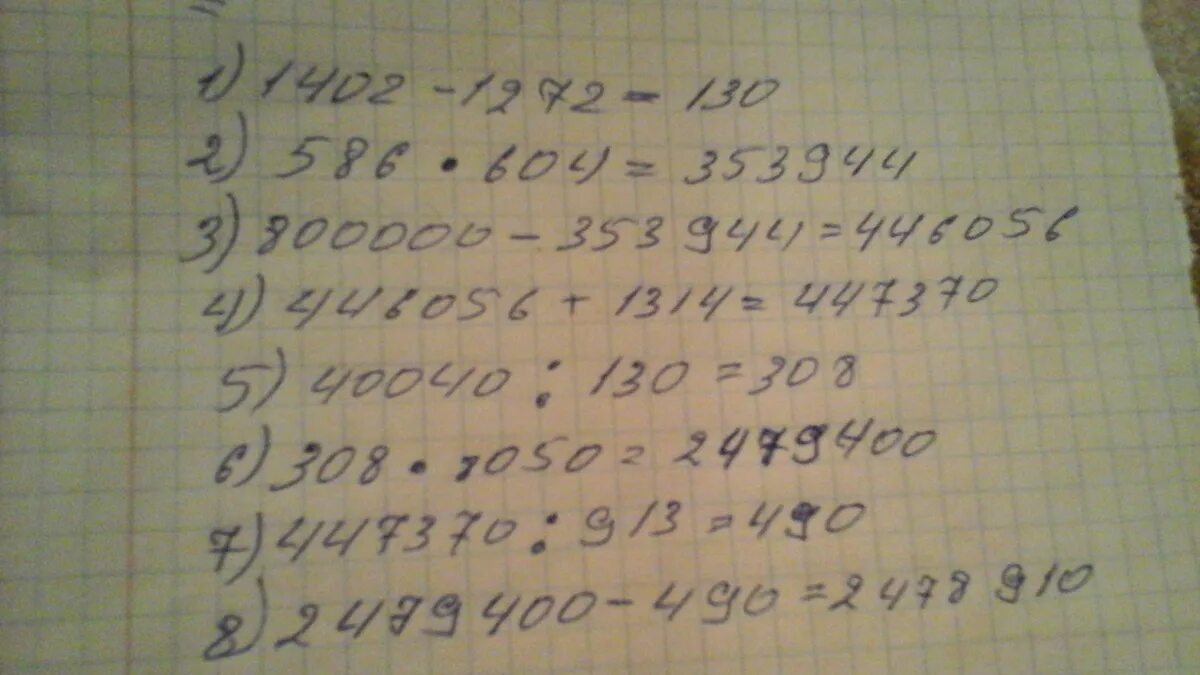 1) 1402 - 1272 = 130
2) 586 • 604 = 353944
3) 800000 - 353944 = 446056
4) 446056 + 1314 = 447370
5) 40040 : 130 = 308
6) 308 • 8050 = 2479400
7) 447370 : 913 = 490
8) 2479400 - 490 = 2478910